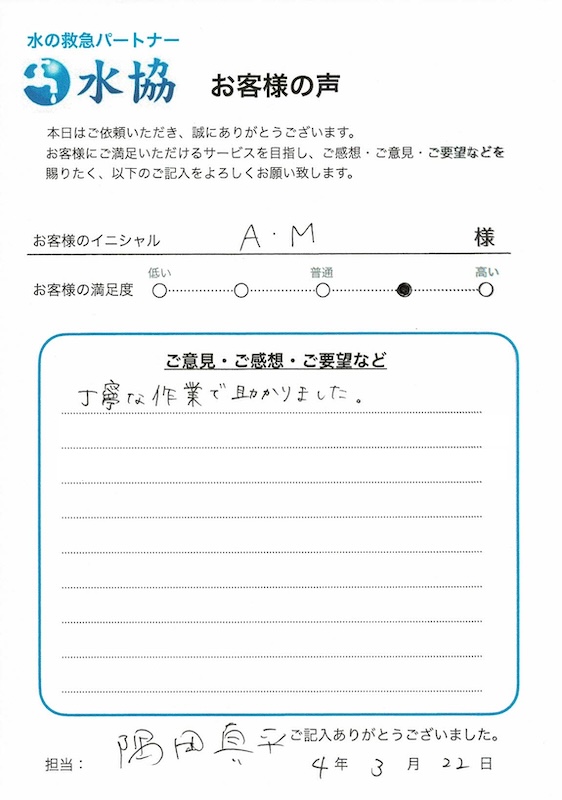 水の救急パートナー
水協
お客様の声
本日はご依頼いただき、誠にありがとうございます。
お客様にご満足いただけるサービスを目指し、ご感想・ご意見・ご要望などを
賜りたく、以下のご記入をよろしくお願い致します。
お客様のイニシャル A・M 様
低い 普通 高い
お客様の満足度
ご意見・ご感想・ご要望など
丁寧な作業で助かりました。
ご記入ありがとうございました。
担当： 隅田真平 4年3月22日